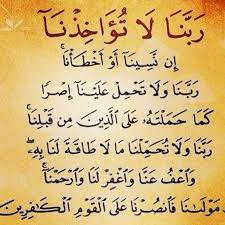 رَبَّنَا لَا تُؤَاخِذْنَآ
إِن نَّسِينَآ أَوْ أَخْطَأْنَا ۚ
رَبَّنَا وَلَا تَحْمِلْ عَلَيْنَآ إِصْرًا
كَمَا حَمَلْتَهُۥ عَلَى ٱلَّذِينَ مِن قَبْلِنَا ۚ
رَبَّنَا وَلَا تُحَمِّلْنَا مَا لَا طَاقَةَ لَنَا بِهِۦ ۖ
وَٱعْفُ عَنَّا وَٱغْفِرْ لَنَا وَٱرْحَمْنَآ ۚ
مَوْلَىٰنَا فَٱنصُرْنَا عَلَى ٱلْقَوْمِ ٱلْكَٰفِرِينَ